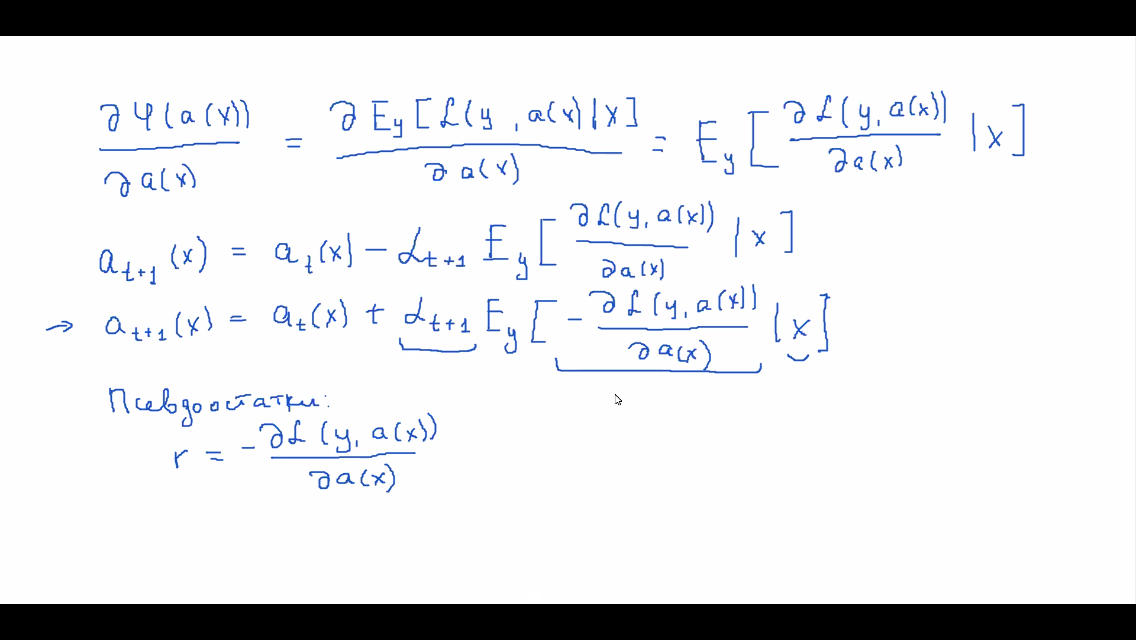 ∂Ψ(a(x))/∂a(x) = ∂E_y[ℒ(y, a(x)|x]/∂a(x) = E_y[∂ℒ(y, a(x))/∂a(x) | x]
a_{t+1}(x) = a_t(x) − α_{t+1} E_y[∂ℒ(y, a(x))/∂a(x) | x]
→ a_{t+1}(x) = a_t(x) + α_{t+1} E_y[−∂ℒ(y, a(x))/∂a(x) | x]
Псевдоостатки:
r = −∂ℒ(y, a(x))/∂a(x)